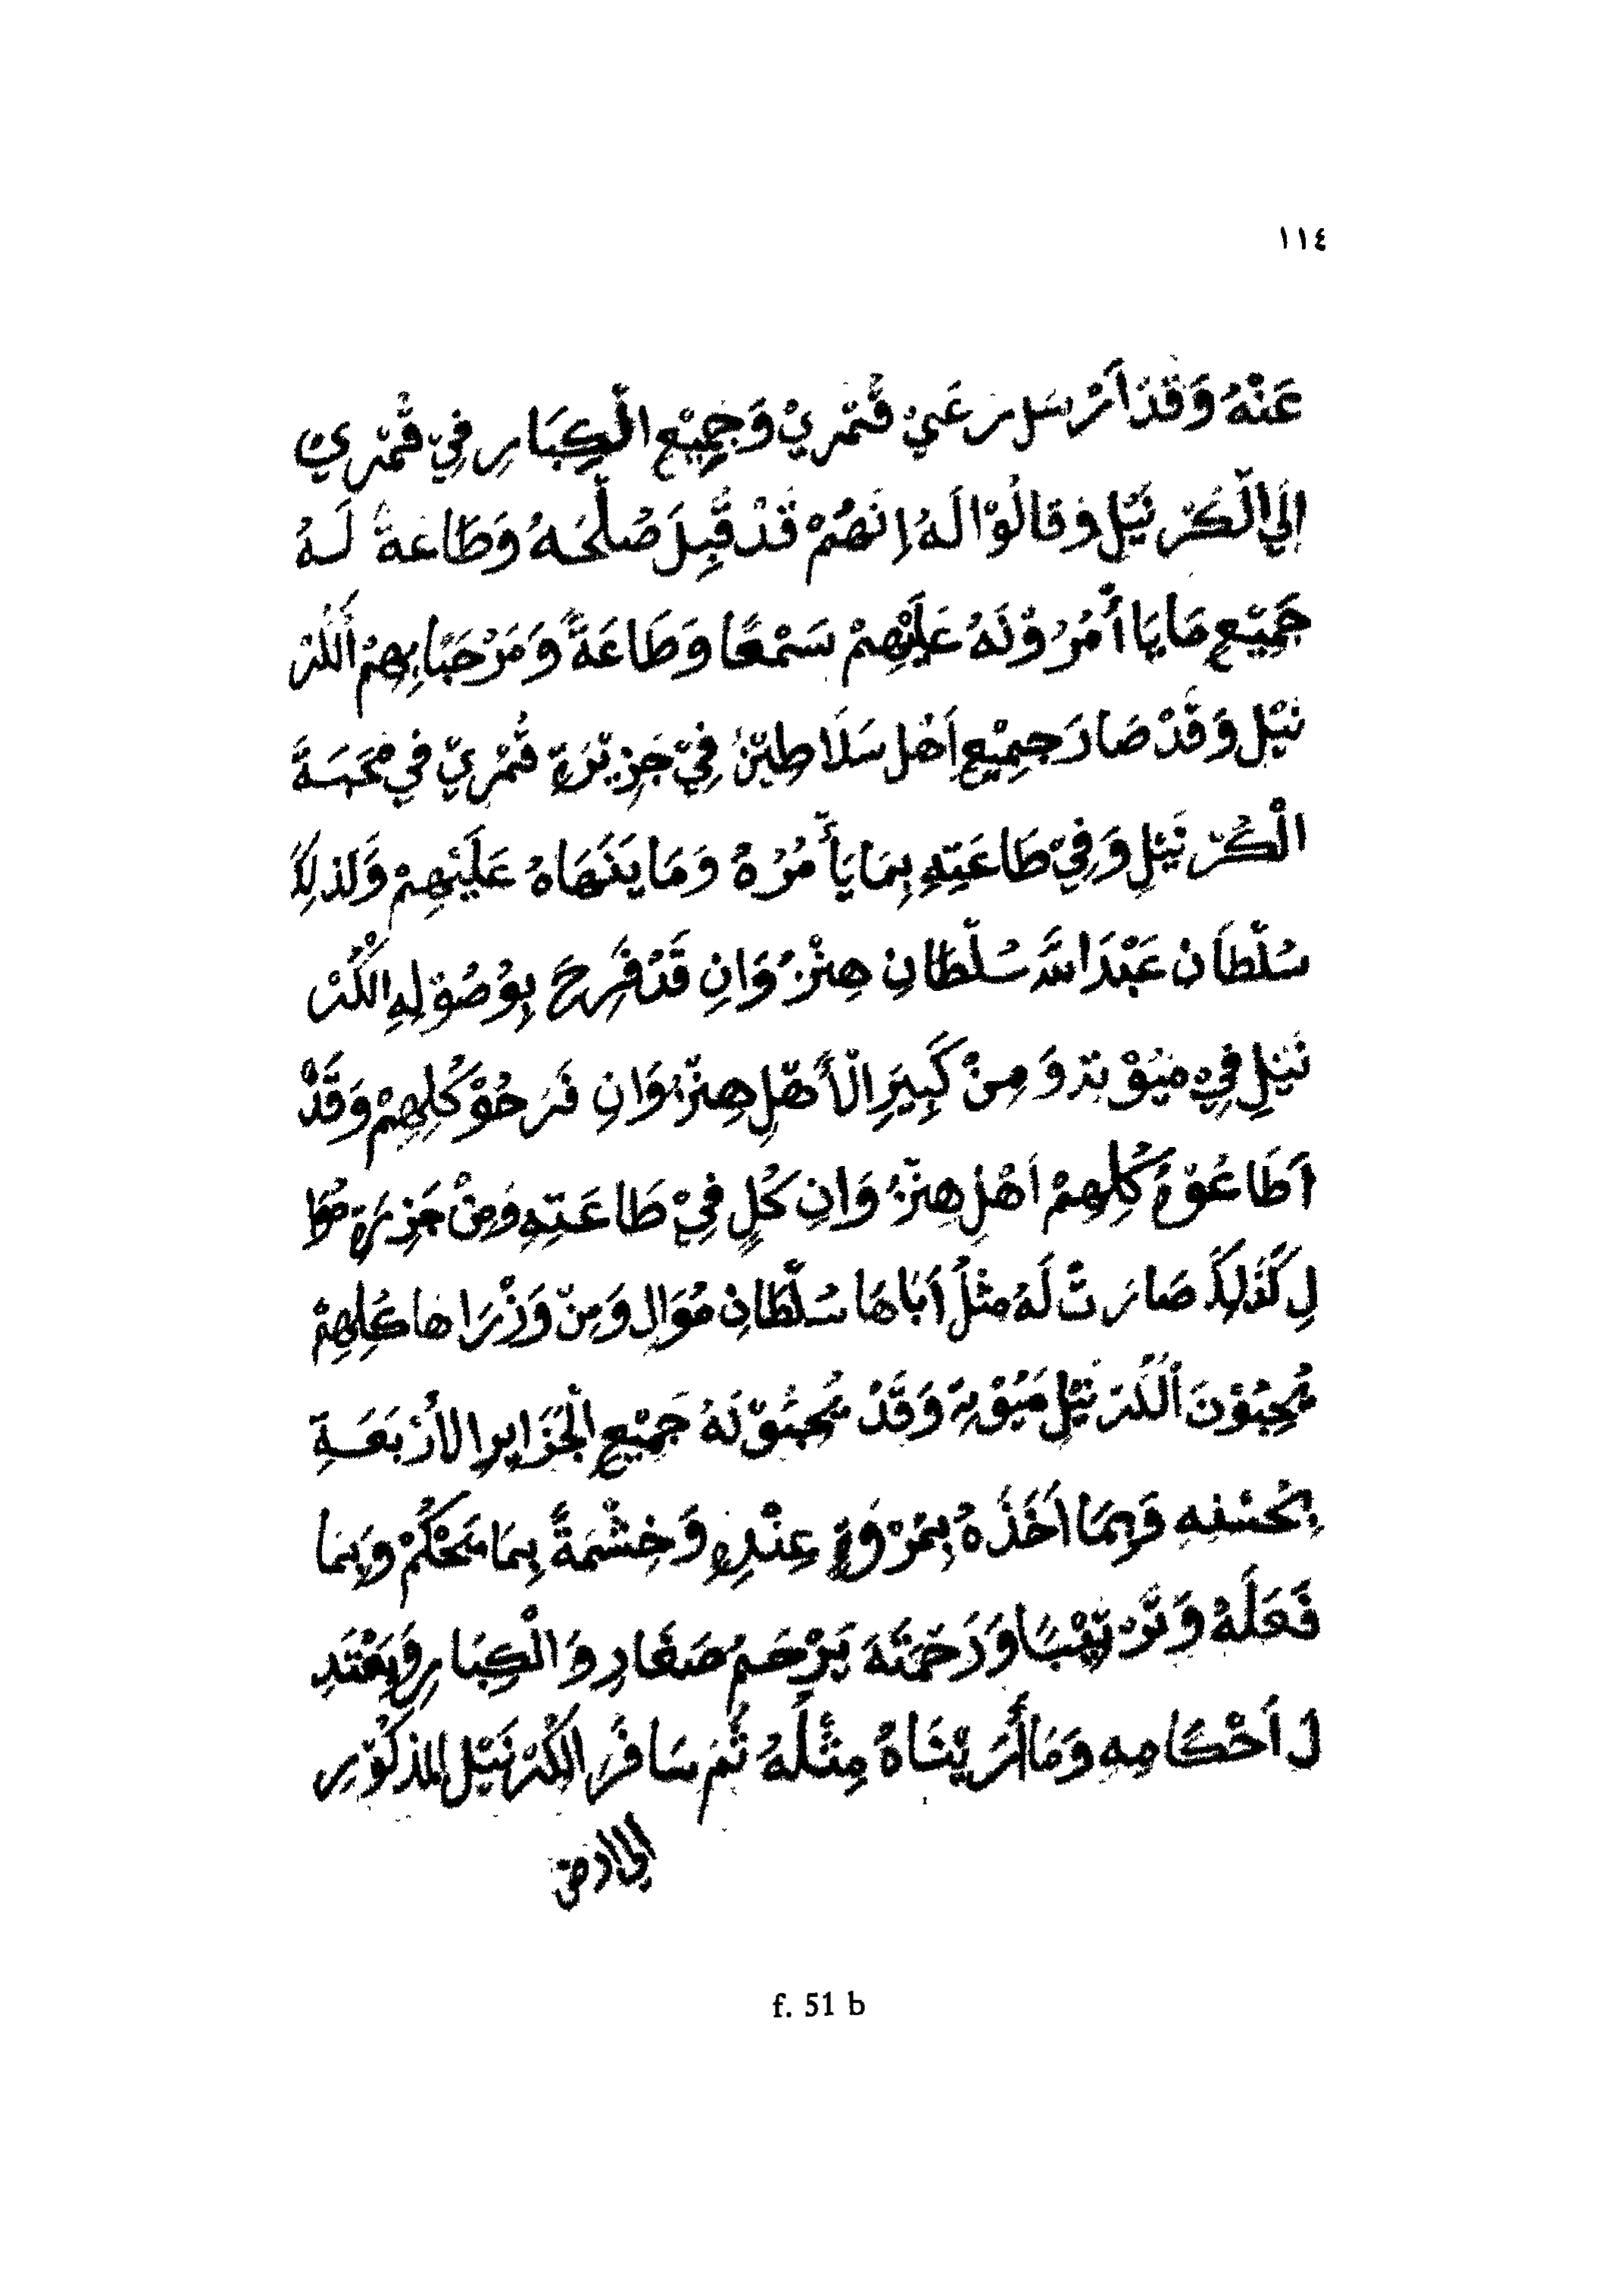 ١١٤
عَنْهُ وَقَدْ اَرْسَل رَعَيْ قُمْرِيْ وَجَمِيْع الْكِبَارِ فِيْ قُمْرِي
اِلَي الْكَرْنَيْل وَقَالُوْا لَهُ اِنَهُمْ قَدْ قَبِلَ صُلْحَهُ وَطَاعَةً لَهُ
جَمِيْعِ مَا يَا أْمُرُوْنَهُ عَلَيْهِمْ سَمْعًا وَطَاعَةً وَمَرْحَبًا بِهِمْ اَلْكُرْ
نَيْل وَقَدْ صَارَ جَمِيْعِ اَهْل سَلَاطِيْنُ فِيْ جَزِيْرَةِ قُمْرِيْ فِي مُحَبَةً
الْكُرْنَيْلِ وَفِيْ طَاعَتِهِ بِمَا يَأْمُرُهُ وَمَا يَنَهَاهُ عَلَيْهِمْ وَلَذلِكَ
سُلْطَان عَبْدَ اللَّه سُلْطَانِ هِنْزُوَانِ قَدْ فَرِحَ بِوُصُوْلِهِ الْكُرْ
نَيْلِ فِيْ مَيُوْتَةْ وَمِنْ كَبِيَرِ الْأَهْلِ هِنْزُوَانِ فَرَحُوْ كُلِهِمْ وَقَدْ
اَطَاعُوْهُ كُلِهِمْ اَهْلِ هِنْزُوَانِ كُلٍ فِيْ طَاعَتِهِ وَمِنْ جَزِيرَةِ مُوَا
لِ كَذَلِكَ صَارَتْ لَهُ مثْلُ اَبَاهَا سُلْطَانِ مُوَالِ وَمِنْ وَزْرَاهَا كُلِهِمْ
يُحِبُوْنَ اَلْكُرْنَيْلِ مَيُوْتِةَ وَقَدْ يُحِبُوْنَهُ جَمِيْعِ الْجَزَايِرِ الاَرْبَعَةِ
بِحُسْنِهِ وَبِمَا اَخَذَهُ بِمُرْوَةٍ عِنْدِهِ وَحِشْمَةً بِمَا يَحْكُمْ وَبِمَا
فَعَلَهُ وَتَرْتِيْبًا وَرَحْمَتَهَ يَرْحَمُ صَغَارِ وَالْكِبَارِ وَيَعْتَدِ
لَ اَحْكَامِهِ وَمَا أَرَيْنَاهُ مِثْلَهُ ثُمَ سَافَرَ الْكُرْنَيْل المذكُوْرِ
الى ارض
f. 51 b